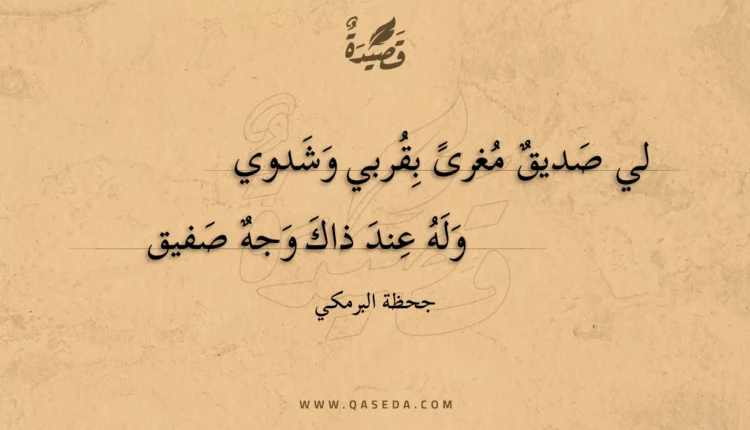 قَصِيْدَةٌ
لي صَديقٌ مُغرىً بِقُربي وَشَدوي
وَلَهُ عِندَ ذاكَ وَجهٌ صَفيق
جحظة البرمكي
WWW.QASEDA.COM